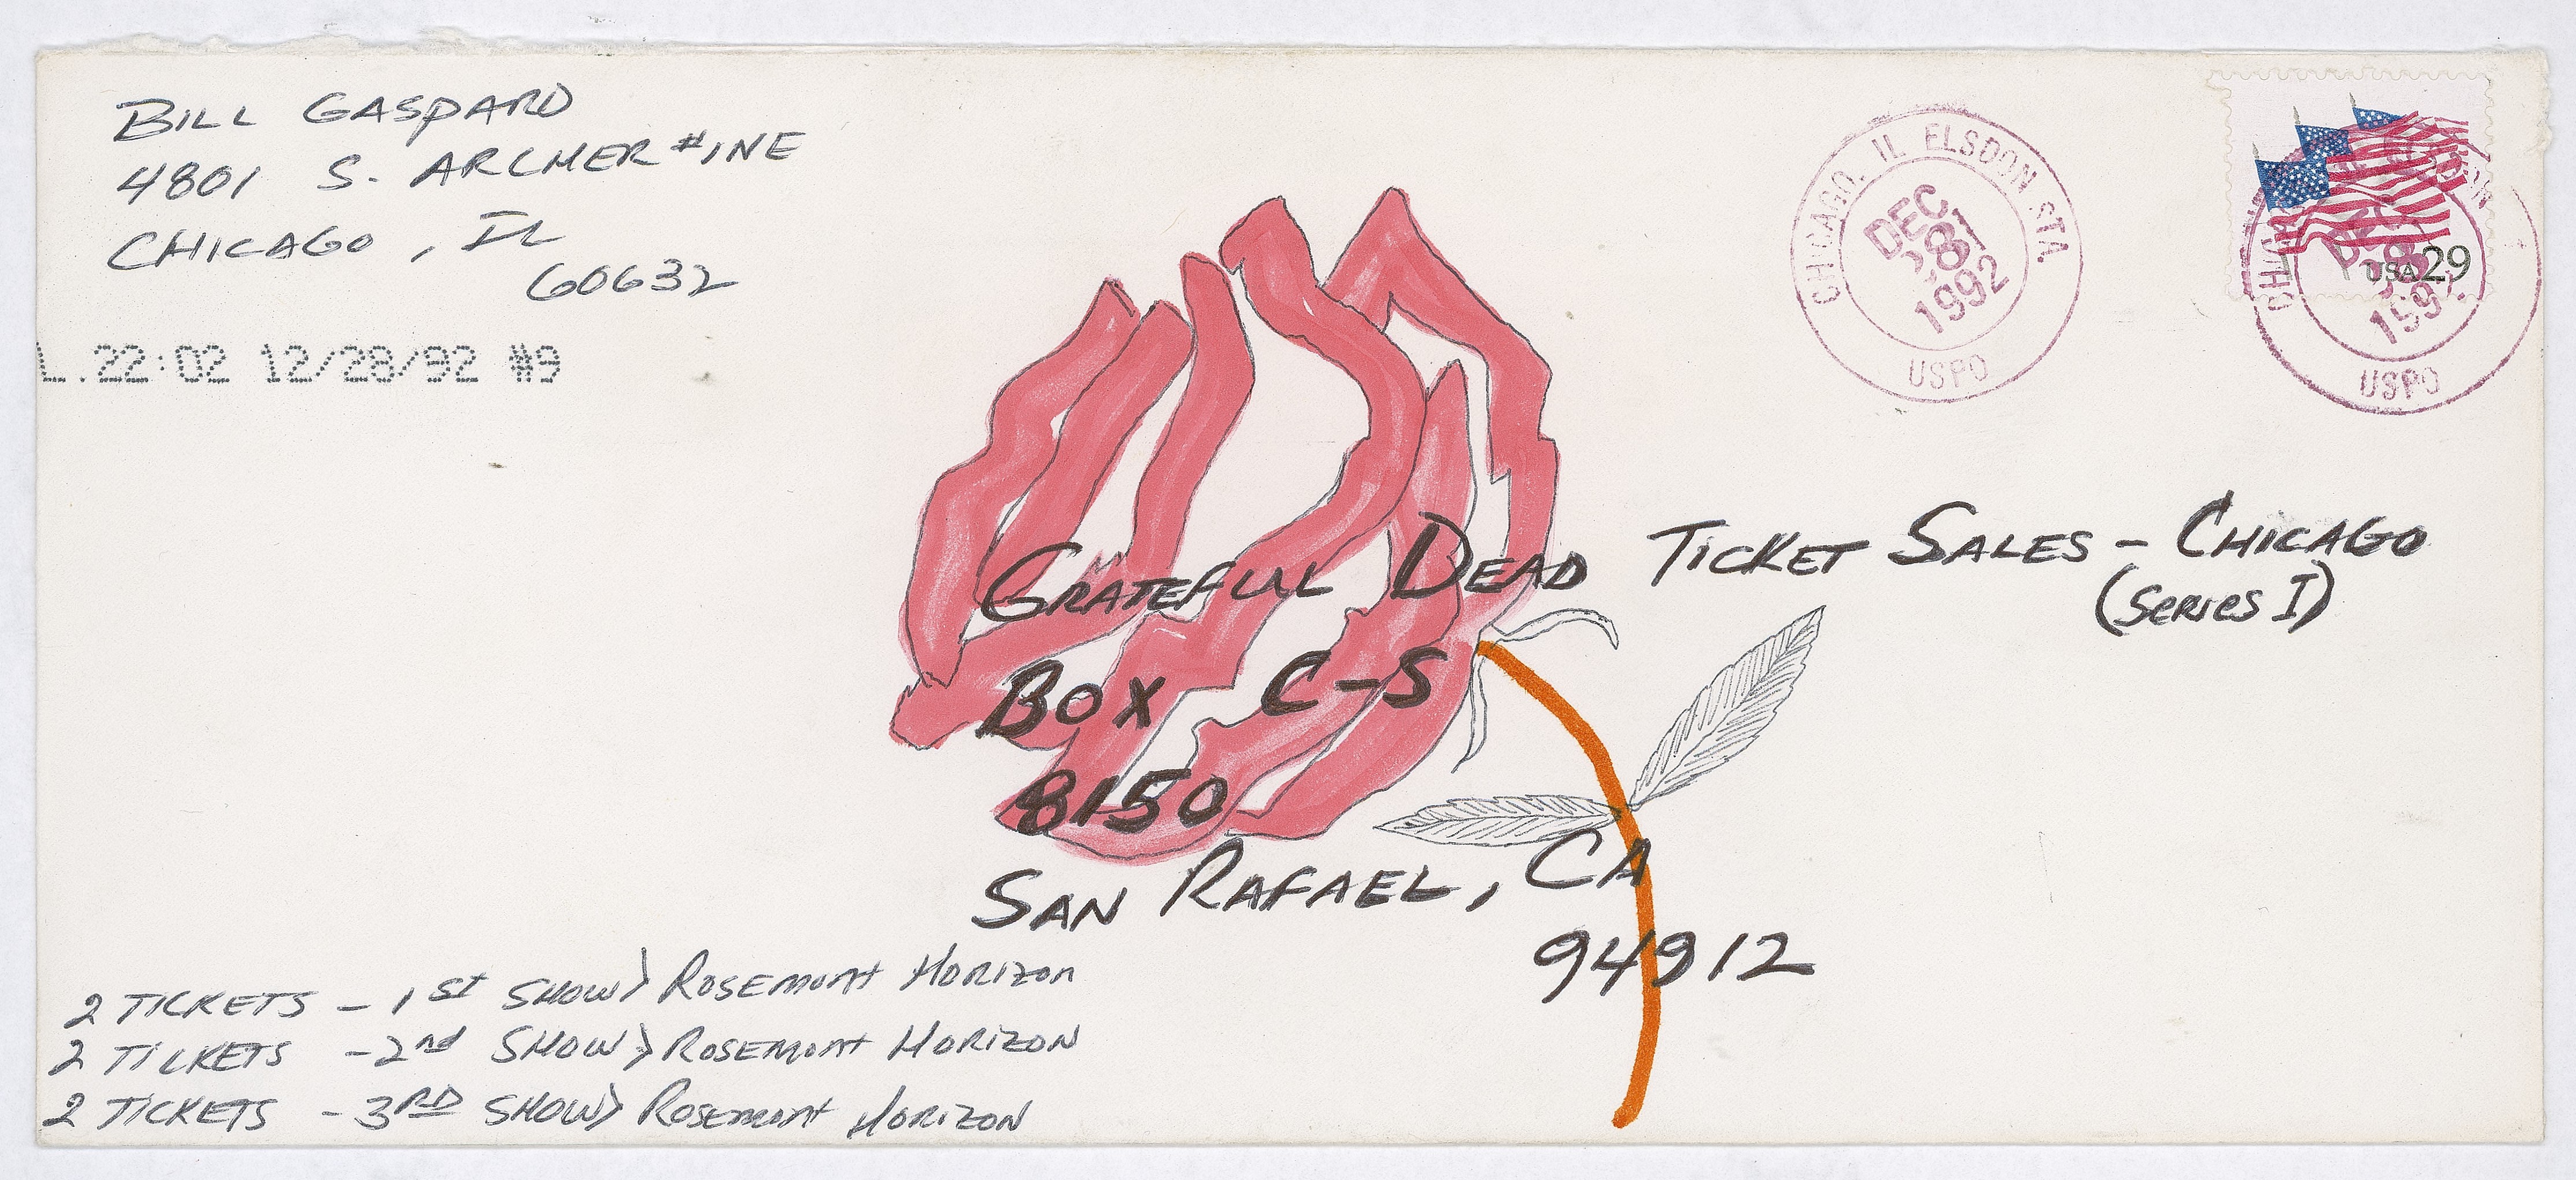 BILL GASPARD
4801 S. ARCHER #1NE
CHICAGO, IL
60632
L.22:02 12/28/92 #9
CHICAGO, IL ELSDON STA.
DEC
28
1992
USPO
USA 29
CHICAGO
DEC
28
199
USPO
GRATEFUL DEAD TICKET SALES - CHICAGO
(SERIES I)
BOX C-S
8150
SAN RAFAEL, CA
94912
2 TICKETS - 1st SHOW > ROSEMONT HORIZON
2 TICKETS - 2nd SHOW > ROSEMONT HORIZON
2 TICKETS - 3RD SHOW > ROSEMONT HORIZON